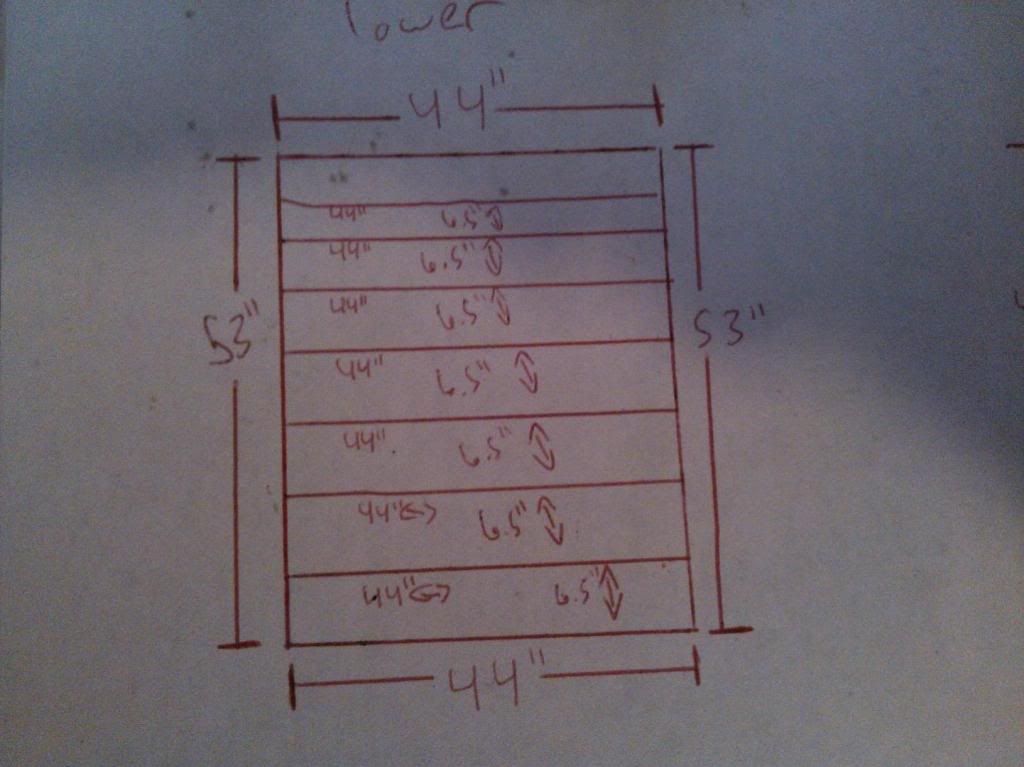 lower
44"
44" 6.5"
44" 6.5"
44" 6.5"
53" 53"
44" 6.5"
44" 6.5"
44" 6.5"
44" 6.5"
44"